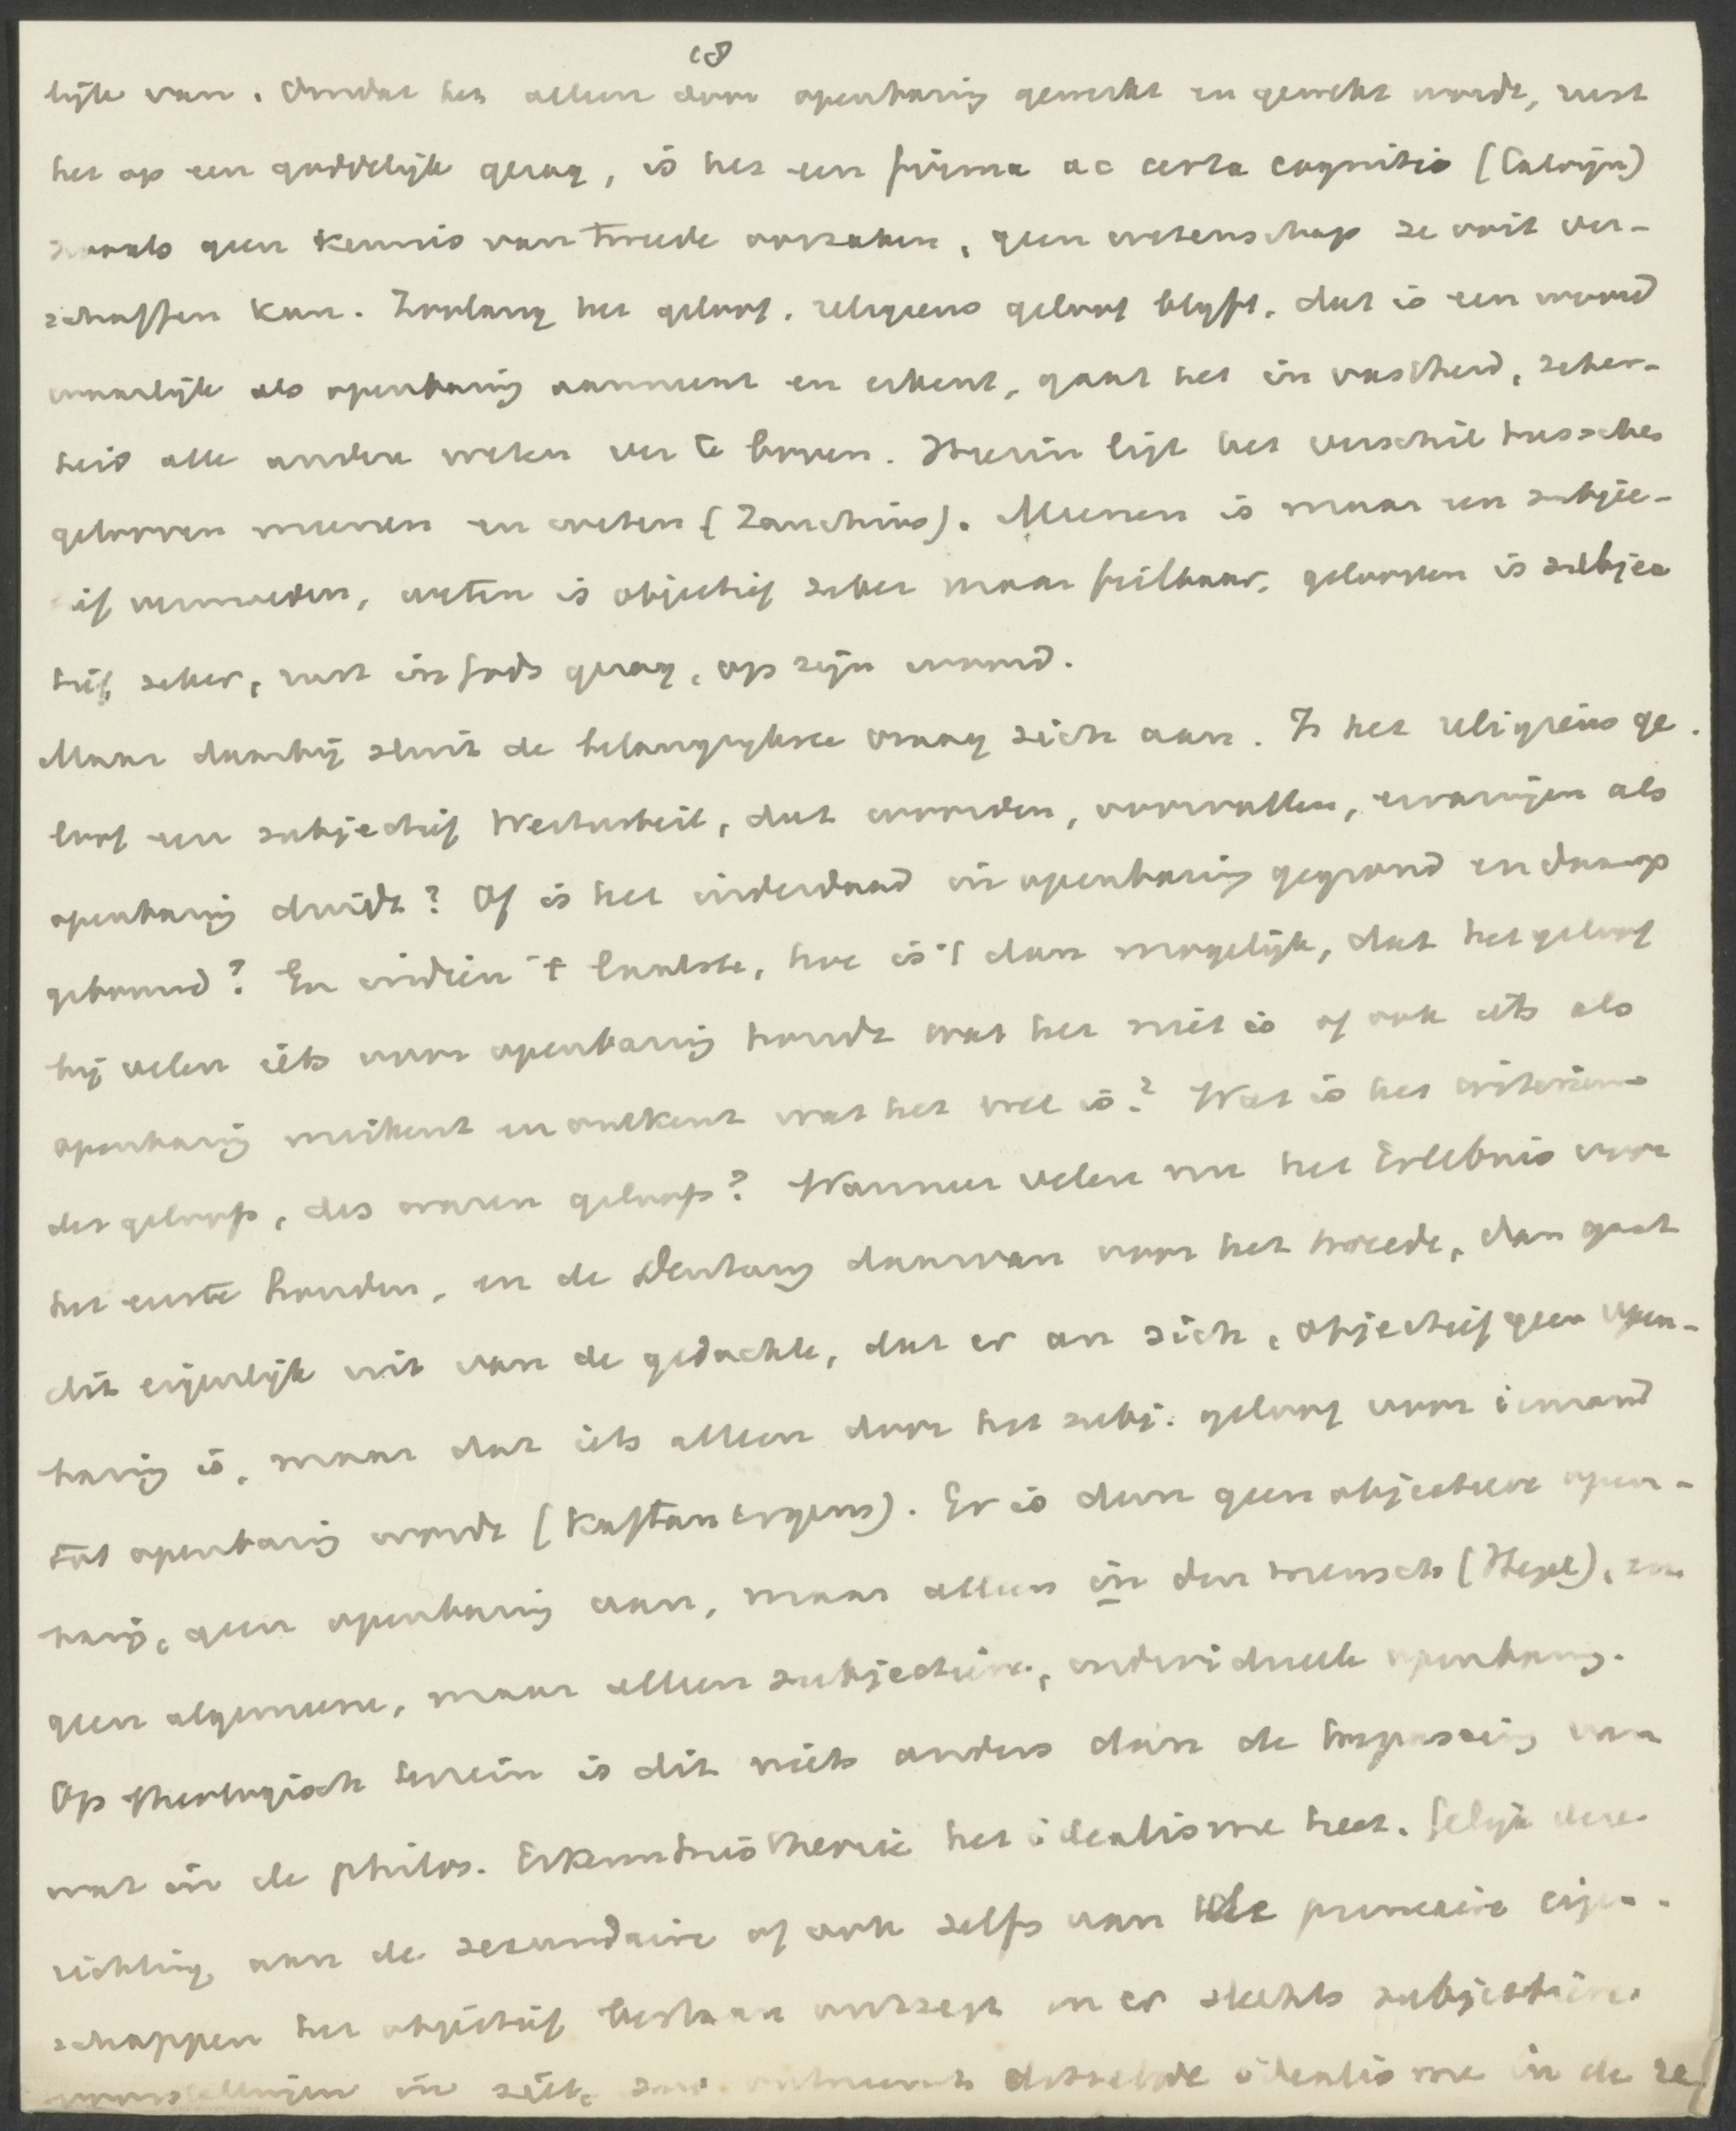 18
lijk van. Omdat het alleen door openbaring gewerkt en gewekt wordt, rust
het op een goddelijk gezag, is het een firma ac certa cognitio (Calvijn)
zooals geen kennis van tweede oorzaken, geen wetenschap ze ooit ver-
schaffen kan. Zoolang het geloof, religieus geloof blijft, dat is een woord
waarlijk als openbaring aanneemt en erkent, gaat het in vastheid, zeker-
heid alle andere weten ver te boven. Hierin ligt het verschil tusschen
gelooven meenen en weten (Zanchius). Meenen is maar een subjec-
tief vermoeden, weten is objectief zeker maar feilbaar, gelooven is subjec
tief zeker, rust in Gods gezag, op zijn woord.
Maar daarbij sluit de belangrijkste vraag zich aan. Is het religieus ge-
loof een subjectief Werturteil, dat woorden, voorvallen, ervaringen als
openbaring duidt? Of is het inderdaad in openbaring gegrond en daarop
gebouwd? En indien 't laatste, hoe is 't dan mogelijk, dat het geloof
bij velen iets voor openbaring houdt wat het niet is of ook iets als
openbaring miskent en ontkent wat het wel is? Wat is het criterium
des geloofs, des waren geloofs? Wanneer velen nu het Erlebnis voor
het eerste houden, en de Deutung daarvan voor het tweede, dan gaat
dit eigenlijk uit van de gedachte, dat er an sich, objectief geen open-
baring is, maar dat iets alleen door het subj. geloof voor iemand
tot openbaring wordt (Kaftan ergens). Er is dan geen objectieve open-
baring, geen openbaring aan, maar alleen in den mensch (Hegel),
geen algemeene, maar alleen subjectieve, individueele openbaring.
Op theologisch terrein is dit niets anders dan de toepassing van
wat in de philos. Erkenntnistheorie het idealisme heet. Gelijk deze
richting aan de secundaire of ook zelfs van de primaire eigen-
schappen het objectief bestaan ontzegt en er slechts subjectieve
voorstellingen in ziet, zoo ontneemt datzelfde idealisme in de re